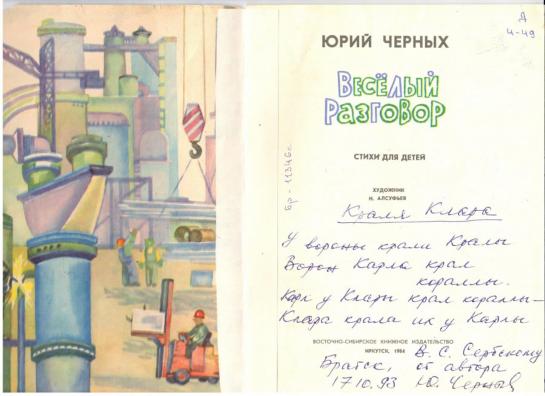 Д
4-49
ЮРИЙ ЧЕРНЫХ
ВЕСЁЛЫЙ
РАЗГОВОР
СТИХИ ДЛЯ ДЕТЕЙ
ХУДОЖНИК
Н. АЛСУФЬЕВ
Бр-11346с
Краля Клара
У вороны крали Кралы
Ворон Карла крал
кораллы.
Карл у Клары крал кораллы –
Клара крала их у Карлы
ВОСТОЧНО-СИБИРСКОЕ КНИЖНОЕ ИЗДАТЕЛЬСТВО
ИРКУТСК, 1984
В. С. Сербскому
Братск, от автора
17.10.93 Ю. Черных